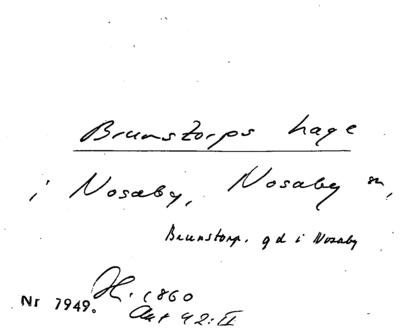 Brunstorps hage
i Nosaby, Nosaby sn,
Brunstorp. gd i Nosaby
1860
Akt 42:II
Nr 7949.